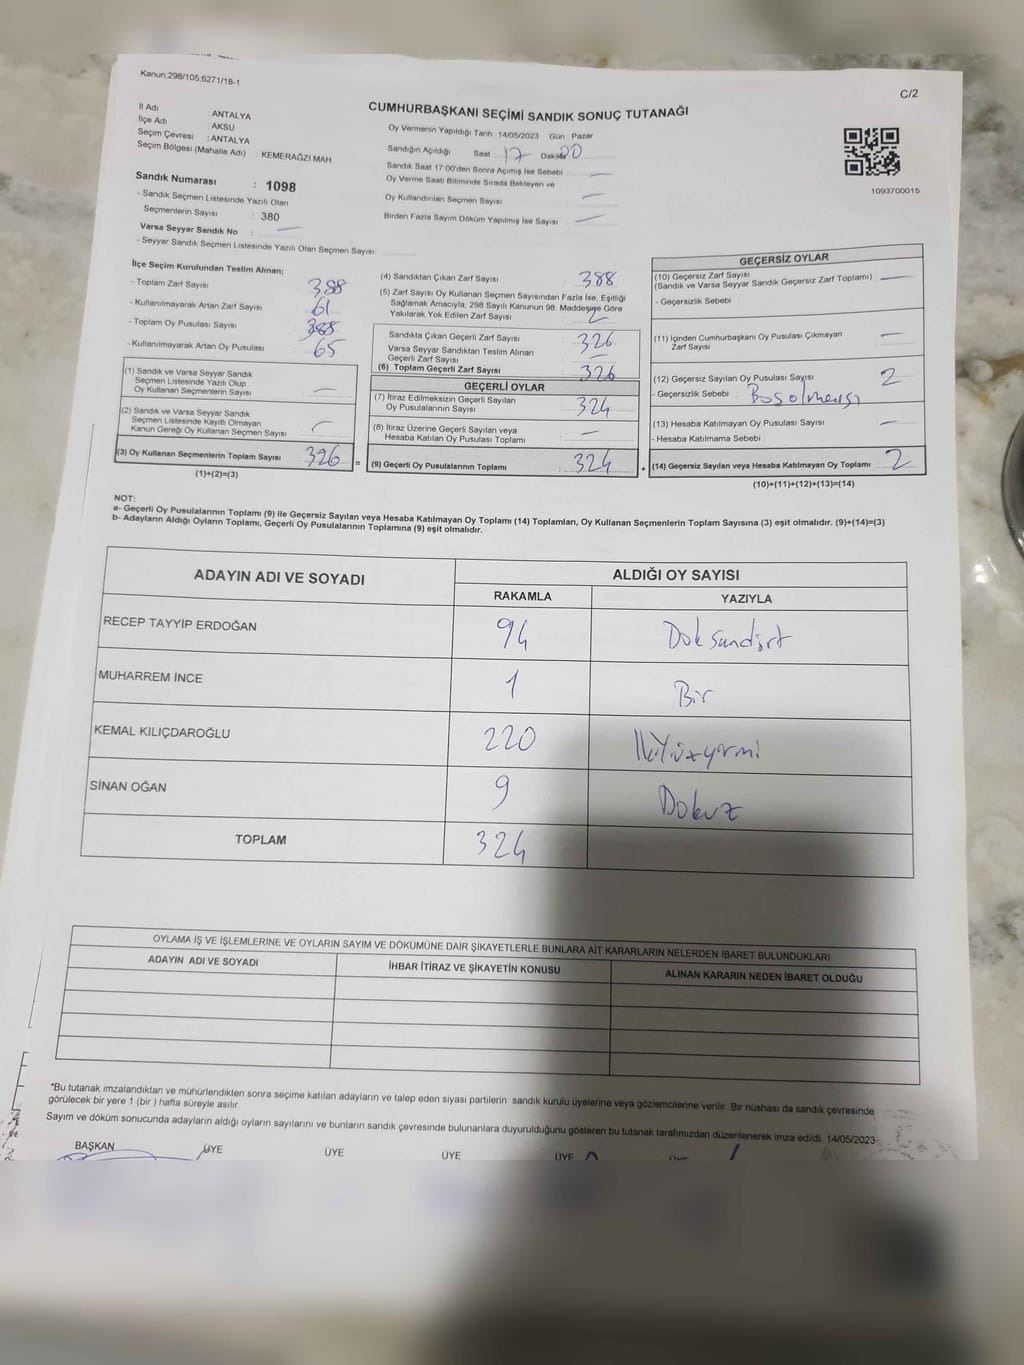 Kanun;298/105,6271/18-1
C/2
CUMHURBAŞKANI SEÇİMİ SANDIK SONUÇ TUTANAĞI
İl Adı : ANTALYA
İlçe Adı : AKSU
Seçim Çevresi : ANTALYA
Seçim Bölgesi (Mahalle Adı) : KEMERAĞZI MAH.
Oy Vermenin Yapıldığı Tarih 14/05/2023 Gün : Pazar
Sandığın Açıldığı Saat 17 Dakika 00
Sandık Saat 17:00'den Sonra Açılmış İse Sebebi —
Oy Verme Saati Bitiminde Sırada Bekleyen ve
Oy Kullandırılan Seçmen Sayısı —
Birden Fazla Sayım Döküm Yapılmış İse Sayısı —
1093700015
Sandık Numarası : 1098
- Sandık Seçmen Listesinde Yazılı Olan
Seçmenlerin Sayısı : 380
Varsa Seyyar Sandık No : —
- Seyyar Sandık Seçmen Listesinde Yazılı Olan Seçmen Sayısı:
İlçe Seçim Kurulundan Teslim Alınan;
- Toplam Zarf Sayısı : 388
- Kullanılmayarak Artan Zarf Sayısı : 61
- Toplam Oy Pusulası Sayısı : 388
- Kullanılmayarak Artan Oy Pusulası : 65
(1) Sandık ve Varsa Seyyar Sandık
Seçmen Listesinde Yazılı Olup
Oy Kullanan Seçmenlerin Sayısı : —
(2) Sandık ve Varsa Seyyar Sandık
Seçmen Listesinde Kayıtlı Olmayan
Kanun Gereği Oy Kullanan Seçmen Sayısı :
(3) Oy Kullanan Seçmenlerin Toplam Sayısı : 326
(1)+(2)=(3)
(4) Sandıktan Çıkan Zarf Sayısı : 388
(5) Zarf Sayısı Oy Kullanan Seçmen Sayısından Fazla İse, Eşitliği
Sağlamak Amacıyla; 298 Sayılı Kanunun 98. Maddesine Göre
Yakılarak Yok Edilen Zarf Sayısı : 2
Sandıkta Çıkan Geçerli Zarf Sayısı : 326
Varsa Seyyar Sandıktan Teslim Alınan
Geçerli Zarf Sayısı : —
(6) Toplam Geçerli Zarf Sayısı : 326
GEÇERLİ OYLAR
(7) İtiraz Edilmeksizin Geçerli Sayılan
Oy Pusulalarının Sayısı : 324
(8) İtiraz Üzerine Geçerli Sayılan veya
Hesaba Katılan Oy Pusulası Toplamı : —
(9) Geçerli Oy Pusulalarının Toplamı : 324
GEÇERSİZ OYLAR
(10) Geçersiz Zarf Sayısı
(Sandık ve Varsa Seyyar Sandık Geçersiz Zarf Toplamı) : —
- Geçersizlik Sebebi :
(11) İçinden Cumhurbaşkanı Oy Pusulası Çıkmayan
Zarf Sayısı : —
(12) Geçersiz Sayılan Oy Pusulası Sayısı : 2
- Geçersizlik Sebebi : Boş olması
(13) Hesaba Katılmayan Oy Pusulası Sayısı : —
- Hesaba Katılmama Sebebi :
(14) Geçersiz Sayılan veya Hesaba Katılmayan Oy Toplamı : 2
(10)+(11)+(12)+(13)=(14)
NOT:
a- Geçerli Oy Pusulalarının Toplamı (9) ile Geçersiz Sayılan veya Hesaba Katılmayan Oy Toplamı (14) Toplamları, Oy Kullanan Seçmenlerin Toplam Sayısına (3) eşit olmalıdır. (9)+(14)=(3)
b- Adayların Aldığı Oyların Toplamı, Geçerli Oy Pusulalarının Toplamına (9) eşit olmalıdır.
ADAYIN ADI VE SOYADI
ALDIĞI OY SAYISI
RAKAMLA YAZIYLA
RECEP TAYYİP ERDOĞAN 94 Doksandört
MUHARREM İNCE 1 Bir
KEMAL KILIÇDAROĞLU 220 İkiYüzyirmi
SİNAN OĞAN 9 Dokuz
TOPLAM 324
OYLAMA İŞ VE İŞLEMLERİNE VE OYLARIN SAYIM VE DÖKÜMÜNE DAİR ŞİKAYETLERLE BUNLARA AİT KARARLARIN NELERDEN İBARET BULUNDUKLARI
ADAYIN ADI VE SOYADI İHBAR İTİRAZ VE ŞİKAYETİN KONUSU ALINAN KARARIN NEDEN İBARET OLDUĞU
*Bu tutanak imzalandıktan ve mühürlendikten sonra seçime katılan adayların ve talep eden siyasi partilerin sandık kurulu üyelerine veya gözlemcilerine verilir. Bir nüshası da sandık çevresinde
görülecek bir yere 1 (bir ) hafta süreyle asılır.
Sayım ve döküm sonucunda adayların aldığı oyların sayılarını ve bunların sandık çevresinde bulunanlara duyurulduğunu gösteren bu tutanak tarafımızdan düzenlenerek imza edildi. 14/05/2023
BAŞKAN ÜYE ÜYE ÜYE ÜYE